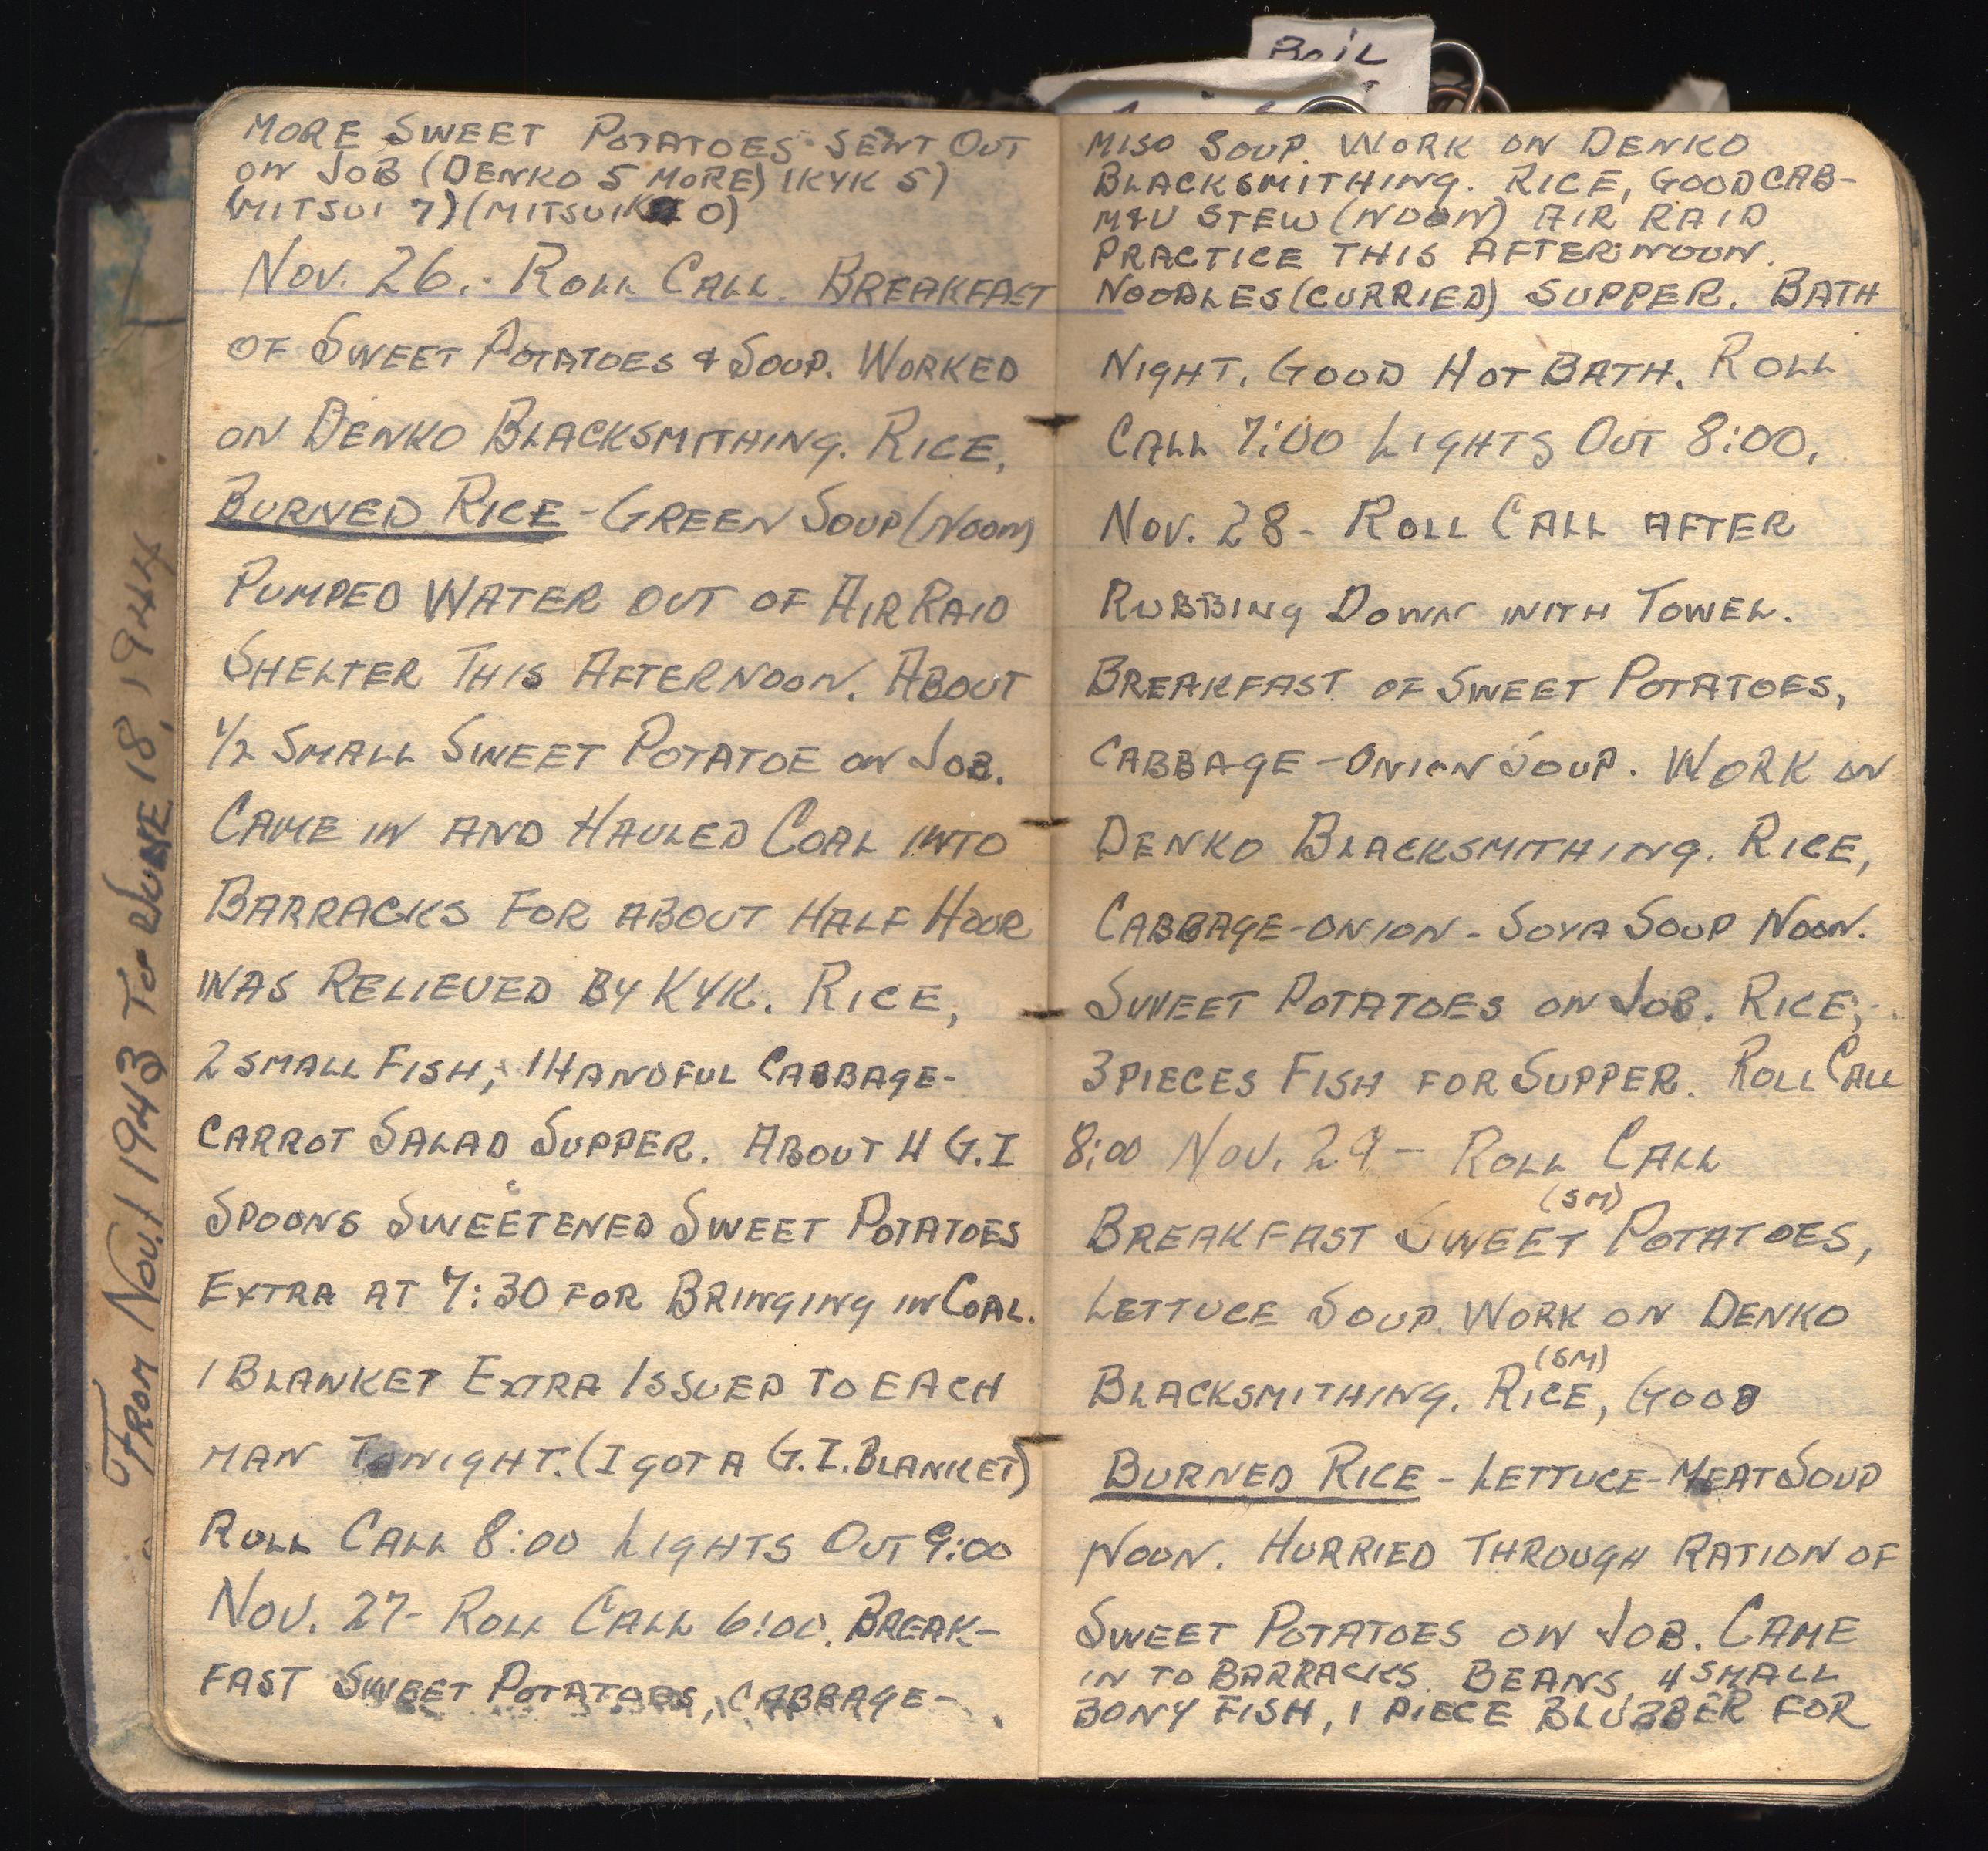 Boil
From Nov. 1 1943 to June 18, 1944
MORE SWEET POTATOES SENT OUT
ON JOB (DENKO 5 MORE) (KYK 5)
(MITSUI 7) (MITSUIK 0)
NOV. 26.- ROLL CALL. BREAKFAST
OF SWEET POTATOES & SOUP. WORKED
ON DENKO BLACKSMITHING. RICE,
BURNED RICE - GREEN SOUP (NOON)
PUMPED WATER OUT OF AIR RAID
SHELTER THIS AFTERNOON. ABOUT
1/2 SMALL SWEET POTATOE ON JOB.
CAME IN AND HAULED COAL INTO
BARRACKS FOR ABOUT HALF HOUR
WAS RELIEVED BY KYK. RICE,
2 SMALL FISH, 1 HANDFUL CABBAGE-
CARROT SALAD SUPPER. ABOUT 4 G.I
SPOONS SWEETENED SWEET POTATOES
EXTRA AT 7:30 FOR BRINGING IN COAL.
1 BLANKET EXTRA ISSUED TO EACH
MAN TONIGHT. (I GOT A G.I. BLANKET)
ROLL CALL 8:00 LIGHTS OUT 9:00
NOV. 27- ROLL CALL 6:00. BREAK-
FAST SWEET POTATOES, CABBAGE-
MISO SOUP. WORK ON DENKO
BLACKSMITHING. RICE, GOOD CAB-
M&V STEW (NOON) AIR RAID
PRACTICE THIS AFTERNOON.
NOODLES (CURRIED) SUPPER. BATH
NIGHT. GOOD HOT BATH. ROLL
CALL 7:00 LIGHTS OUT 8:00.
NOV. 28- ROLL CALL AFTER
RUBBING DOWN WITH TOWEL.
BREAKFAST OF SWEET POTATOES,
CABBAGE - ONION SOUP. WORK ON
DENKO BLACKSMITHING. RICE,
CABBAGE-ONION-SOYA SOUP NOON.
SWEET POTATOES ON JOB. RICE,
3 PIECES FISH FOR SUPPER. ROLL CALL
8:00 NOV. 29 - ROLL CALL
(SM)
BREAKFAST SWEET POTATOES,
LETTUCE SOUP. WORK ON DENKO
(SM)
BLACKSMITHING. RICE, GOOD
BURNED RICE - LETTUCE-MEAT SOUP
NOON. HURRIED THROUGH RATION OF
SWEET POTATOES ON JOB. CAME
IN TO BARRACKS. BEANS, 4 SMALL
BONY FISH, 1 PIECE BLUBBER FOR